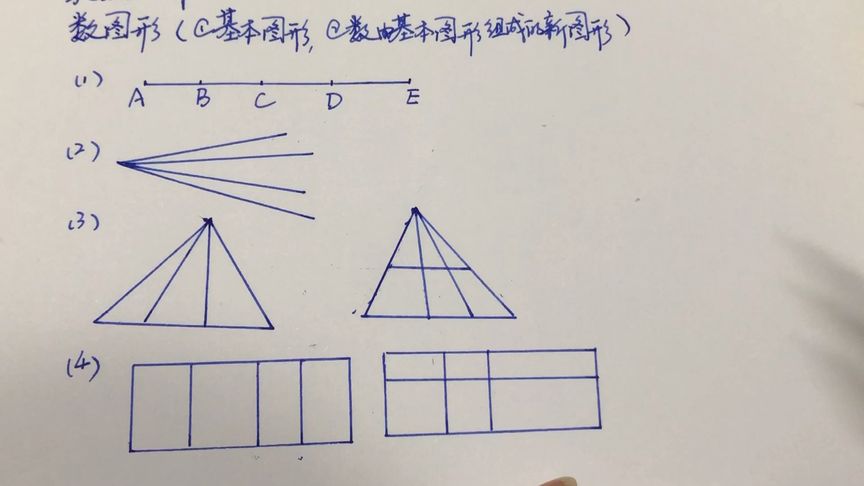 数图形(①基本图形,②数由基本图形组成的新图形)
(1)
A B C D E
(2)
(3)
(4)